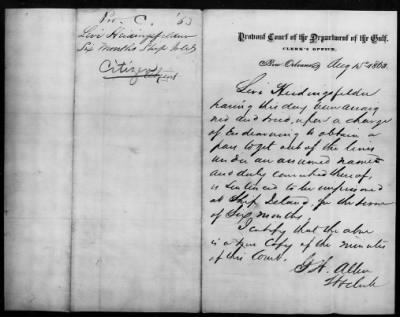 Pro. C. '63
Levi Herdingsfelder
Six Months Ship Island
Citizen
Provost Court of the Department of the Gulf.
CLERK'S OFFICE,
New Orleans, Aug 15th 1863.
Levi Herdingsfelder
having this day been arraig
ned and tried, upon a charge
of Endeavoring to obtain a
pass to get out of the lines
under an assumed name
and duly convicted thereof,
is sentenced to be imprisoned
at Ship Island, for the term
of Six months.
I certify that the above
is a true copy of the minutes
of this Court.
Allen
Clerk